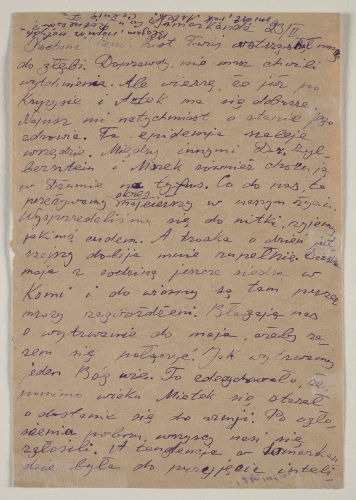 23/II
Kochani Moi. List Twój wstrząsnął mną
do głębi. Doprawdy, nie ma chwili
wytchnienia. Ale wierzę, że już po
Kryzysie i Artek ma się dobrze
Napisz mi natychmiast o stanie jego
zdrowia. Ta epidemja szaleje
wszędzie. Między innymi Dr. Zyl-
berstein i Marek również chorują
w Dżumie na tyfus. Co do nas, to
przeżywamy okres najcięższy w naszym życiu.
Wysprzedaliśmy się do nitki, żyjemy
jakimś cudem. A troska o dzień jut-
rzejszy dobija mnie zupełnie.
moja z rodziną jeszcze siedzą w
Komi i do wiosny są tam przez
mrozy zagwożdżeni. Błagają nas
o wytrwanie do maja, żeby ra-
zem się połączyć. Jak wytrwamy
jeden Bóg wie. To zdecydowało, że
pomimo wieku Mietek się starał
o dostanie się do armji. Po ogło-
szeniu poboru wszyscy nasi się
zgłosili. A tendencja w Samarkan-
dzie była do przyjęcia inteli-